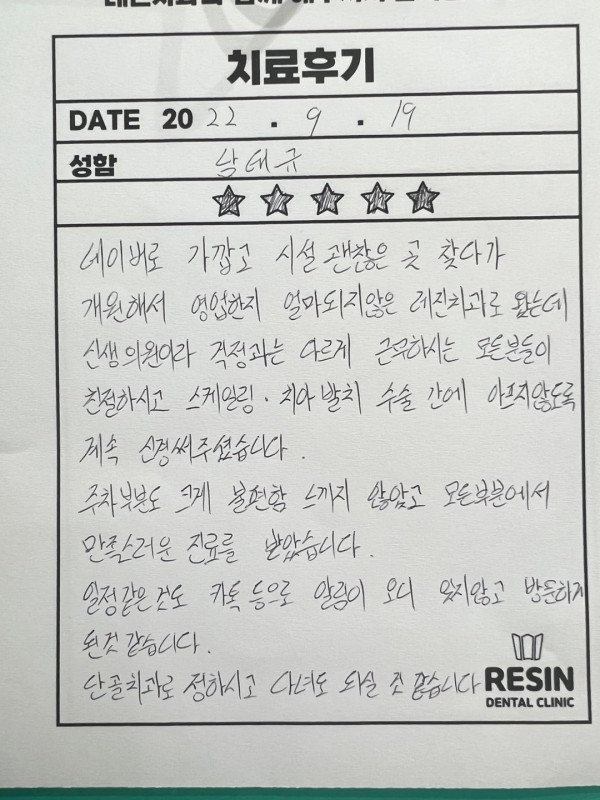 치료후기
DATE 20 22 . 9 . 19
성함 남대규
네이버로 가깝고 시설 괜찮은 곳 찾다가
개원해서 영업한지 얼마되지않은 레진치과로 왔는데
신생의원이라 걱정과는 다르게 근무하시는 모든분들이
친절하시고 스케일링 · 치아발치 수술 간에 아프지않도록
계속 신경써주셨습니다.
주차부분도 크게 불편함 느끼지 않았고 모든부분에서
만족스러운 진료를 받았습니다.
일정같은것도 카톡등으로 알림이 오니 잊지않고 방문하게
된것 같습니다.
단골치과로 정하시고 다녀도 되실 것 같습니다
RESIN
DENTAL CLINIC